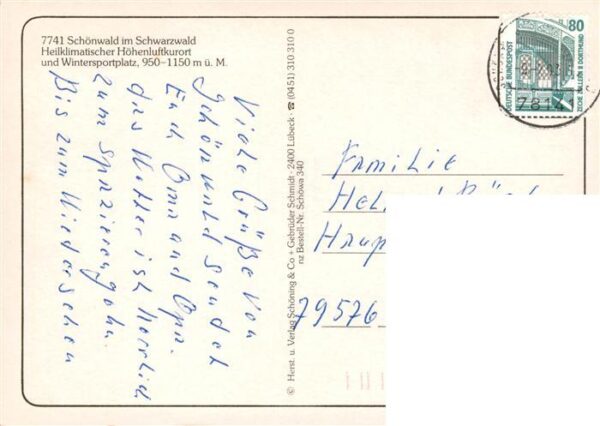 7741 Schönwald im Schwarzwald
Heilklimatischer Höhenluftkurort
und Wintersportplatz, 950–1150 m ü. M.
Viele Grüße von
Schönwald sendet
Euch Oma und Opa.
das Wetter ist herrlich
zum Spazierengehn.
Bis zum Wiedersehen
© Herst. u. Verlag Schöning & Co + Gebrüder Schmidt · 2400 Lübeck · ☎ (0451) 310 310 0
nz Bestell-Nr. Schöwa 340
80
DEUTSCHE BUNDESPOST
ZECHE ZOLLERN II DORTMUND
Familie
79576